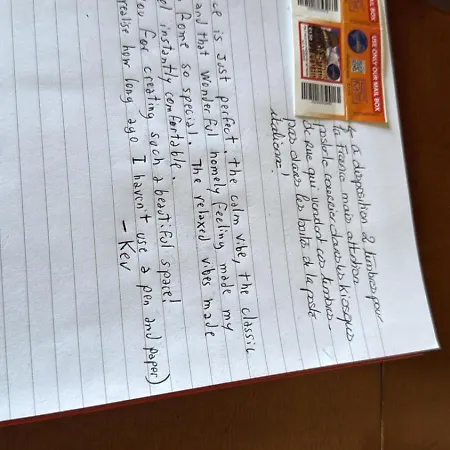 MAIL BOX
USE ONLY OUR MAIL BOX
à disposition 2 timbres pour
la France mais attention
poster courrier dans les kiosques
de rue qui vendent ces timbres -
pas dans les boîtes de la poste
italienne!
ce is just perfect. the calm vibe, the classic
and that wonderful homely feeling made my
Rome so special. The relaxed vibes made
el instantly comfortable.
ou for creating such a beautiful space!
realise how long ago I haven't use a pen and paper)
- Kev